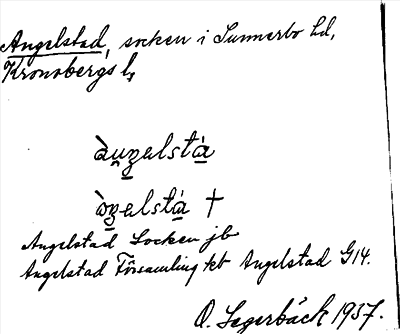 Angelstad, socken i Sunnerbo hd,
Kronobergs l.,
àu̯ŋelstà
òŋelstà †
Angelstad Socken jb
Angelstad Församling kb Angelstad G14.
O. Segerbäck 1937.